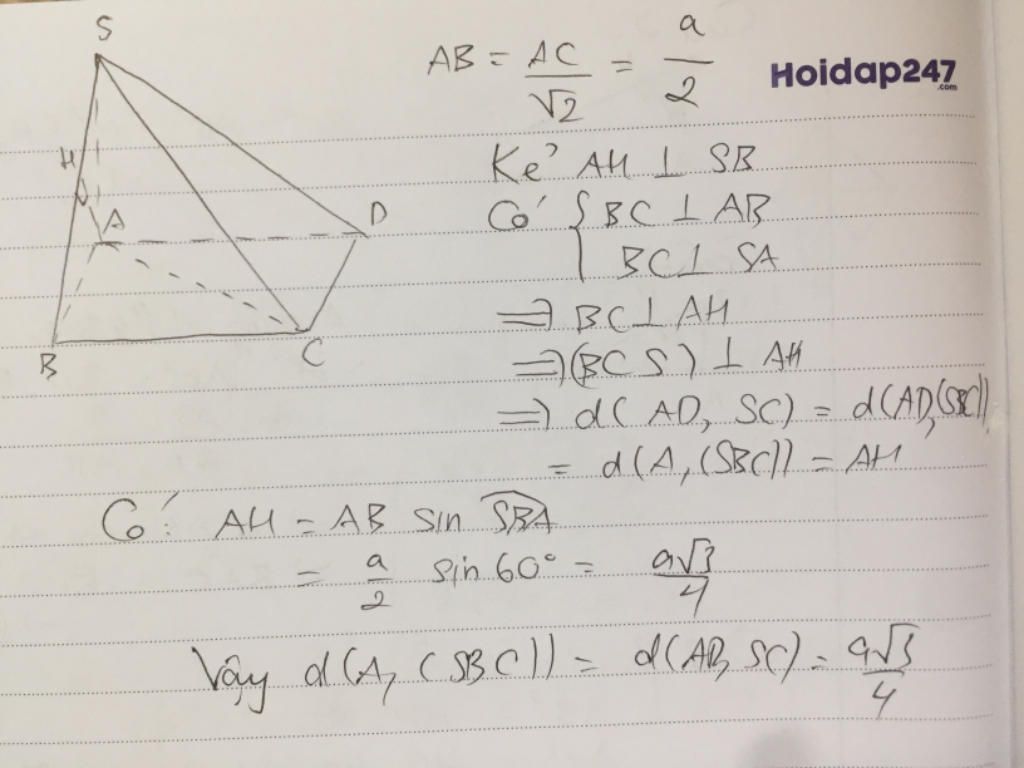 S
H
A
D
B
C
AB = AC/√2 = a/2
Hoidap247
.com
Kẻ AH ⊥ SB
Có { BC ⊥ AB
BC ⊥ SA
=> BC ⊥ AH
=> (BCS) ⊥ AH
=> d(AD, SC) = d(AD,(SBC))
= d(A, (SBC)) = AH
Có: AH = AB sin SBA
= a/2 sin 60° = a√3/4
Vậy d(A, (SBC)) = d(AD, SC) = a√3/4